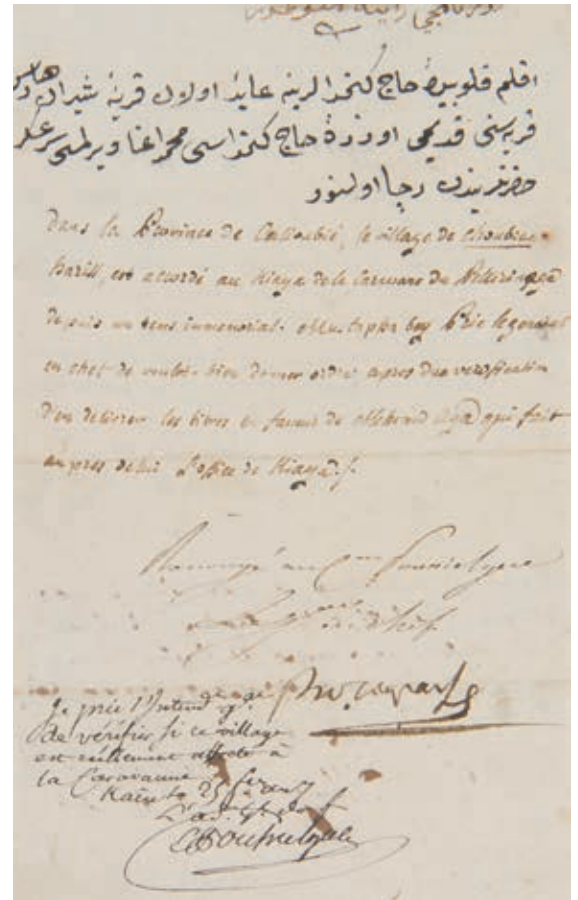 اقلم قلوبيده حاج كتخدالرينه عايد اولان قريهٔ شبران
قريه سنى قديمى اوزره حاج كتخداسى محمد اغا ويرلمسى سر عسكر
حضرتلرندن رجا اولنور
Dans la Province de Callioubié, le village de Choubra
harill, est accordé au Kiaya de la Caravane du Pélerinage
depuis un tems immemorial. Mustapha bey Prie le général
en chef de vouloir bien donner ordre apres due verification
d'en delivrer les titres en faveur de Mehemed Aga qui fait
aupres de lui l'office de Kiaya./.
Renvoyé au C.en Poussielgue
général en chef
Bonaparte
Je prie l'Intend.t g.al
de vérifier si ce village
est réellement affecté à
la Caravanne
Kaire le 25
L'ad.
E Poussielgue